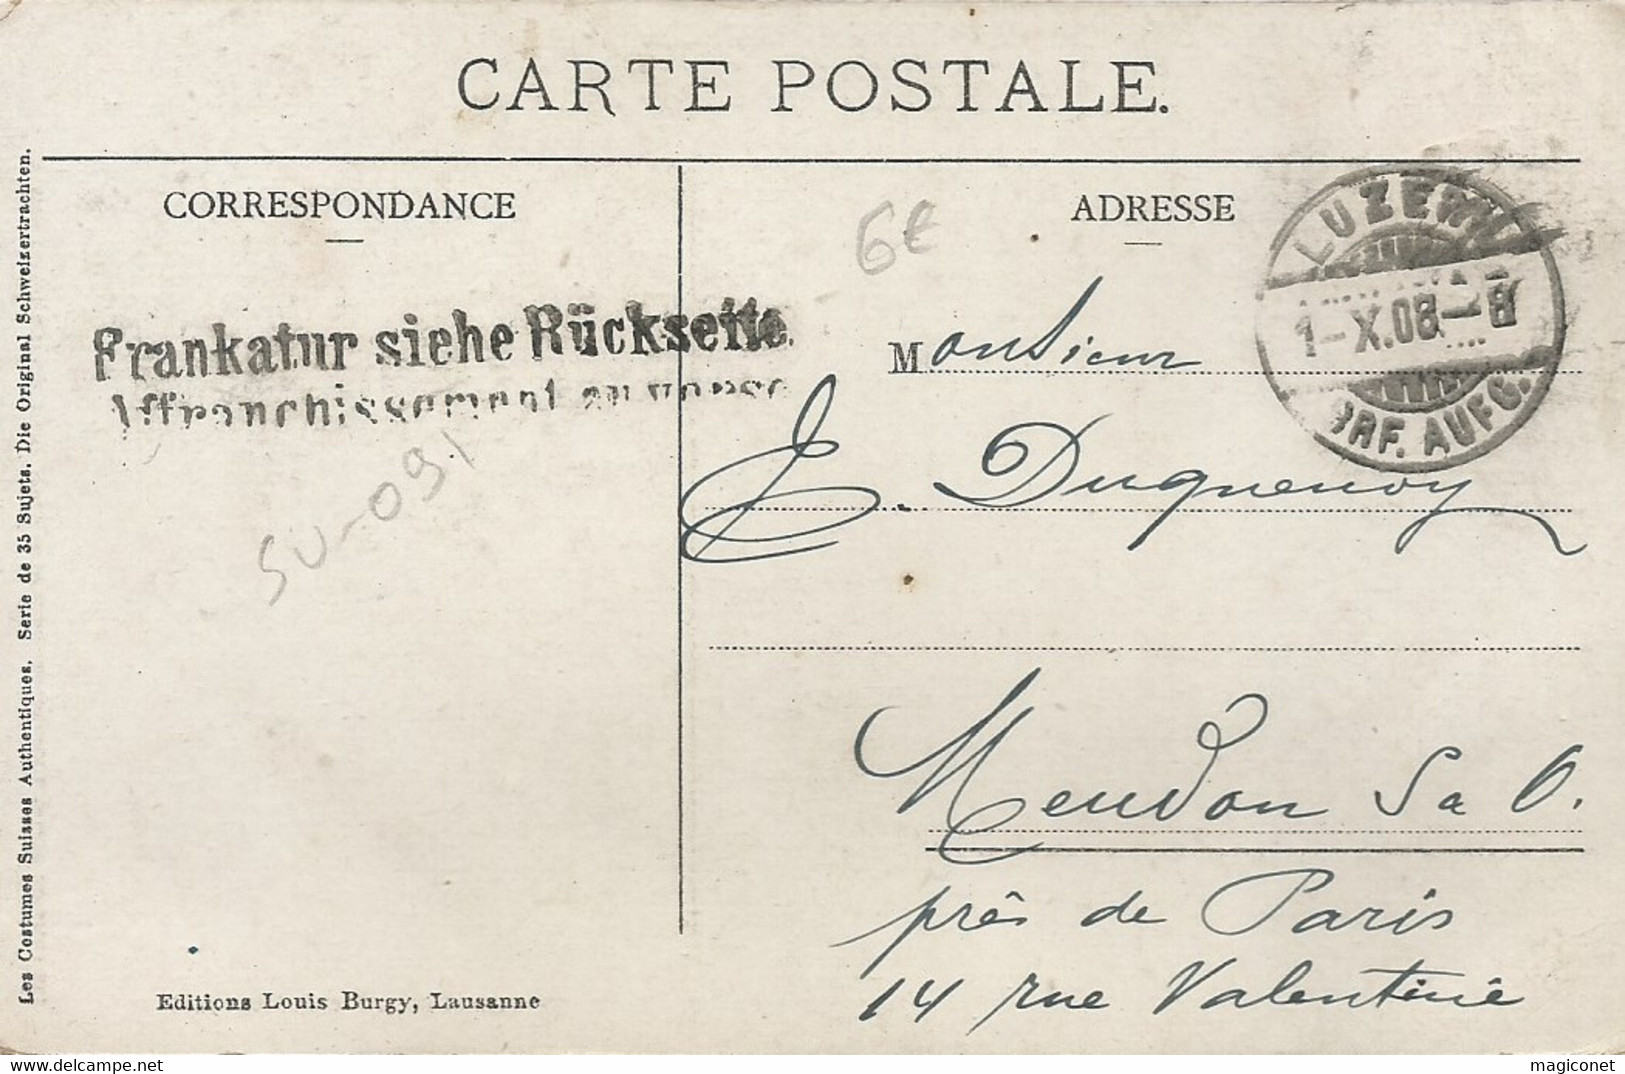 CARTE POSTALE.
CORRESPONDANCE
ADRESSE
6€
LUZERN
1-X.08-8
BRF. AUFG.
Frankatur siehe Rückseite.
Affranchissement au verso
SU-091
Monsieur
E. Duquenoy
Meudon S a O.
près de Paris
14 rue Valentine
Editions Louis Burgy, Lausanne
Les Costumes Suisses Authentiques. Serie de 35 Sujets. Die Original Schweizertrachten.
magiconet